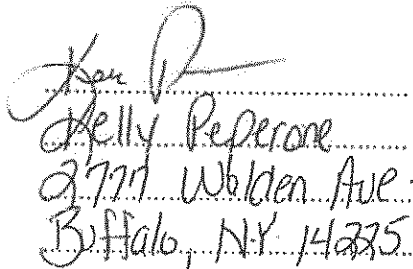 Kelly Peperone
2777 Walden Ave.
Buffalo, NY 14225